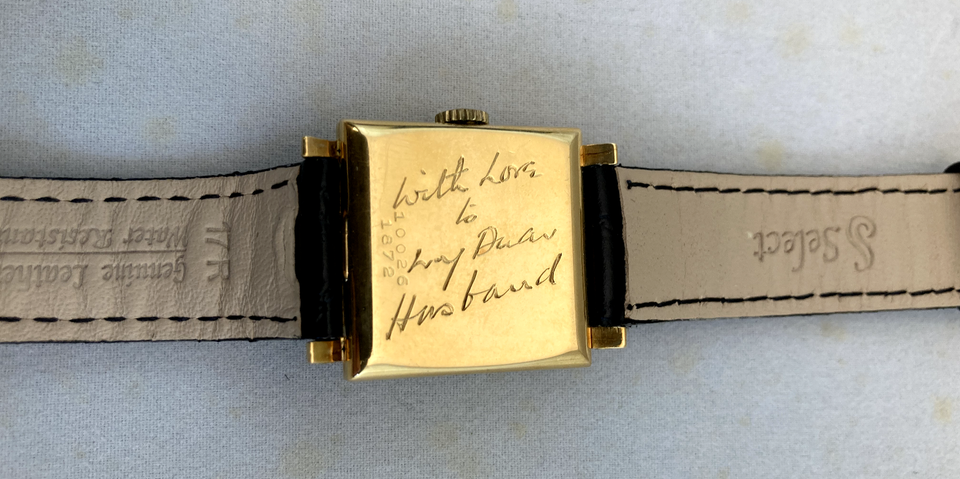 With Love
to
my Dear
Husband
10026
1872
17 R
Water Resistant
Genuine Leather
Select